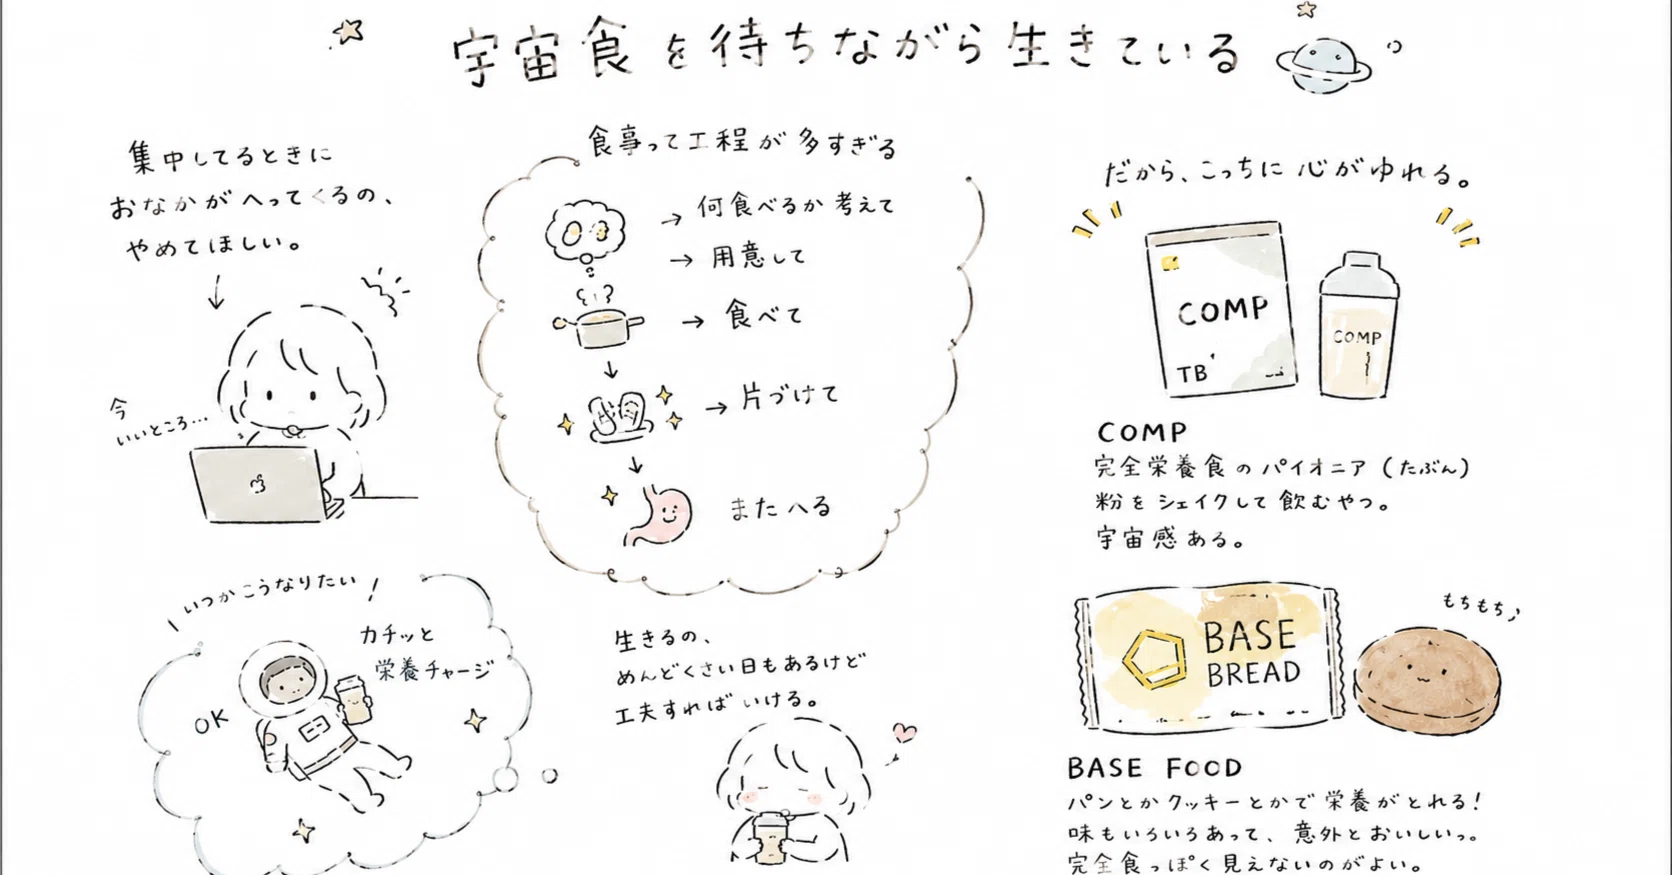 宇宙食を待ちながら生きている
集中してるときに
おなかがへってくるの、
やめてほしい。
今
いいところ…
食事って工程が多すぎる
→ 何食べるか考えて
→ 用意して
→ 食べて
→ 片づけて
またへる
だから、こっちに心がゆれる。
COMP
TB
COMP
COMP
完全栄養食のパイオニア(たぶん)
粉をシェイクして飲むやつ。
宇宙感ある。
いつかこうなりたい!
カチッと
栄養チャージ
OK
生きるの、
めんどくさい日もあるけど
工夫すればいける。
BASE
BREAD
もちもち♪
BASE FOOD
パンとかクッキーとかで栄養がとれる!
味もいろいろあって、意外とおいしいっ。
完全食っぽく見えないのがよい。